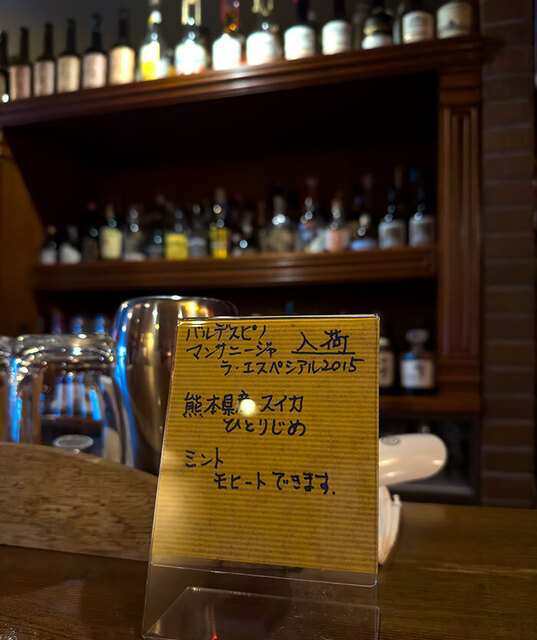 バルデスピノ
マンサニージャ 入荷
ラ・エスペシアル2015
熊本県産 スイカ
ひとりじめ
ミント
モヒートできます。